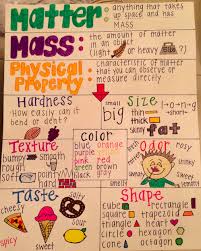 Matter: anything that takes
up space and has
MASS
Mass: the amount of matter
in an object
(light or heavy)
Physical Property: characteristic of matter
that you can observe or
measure directly
Hardness
How easily can it
bend or dent?
Size
big
small
short
thin
skinny
fat
Texture
bumpy
smooth
rough
soft
pointy
hard
color
blue orange
purple
pink red
green brown
black gray
odor
stinky
Taste
cheesy
sweet
salty
sour
spicy
Shape
cube rectangle
square trapezoid
triangle hexagon
circle rhombus
cone octagon